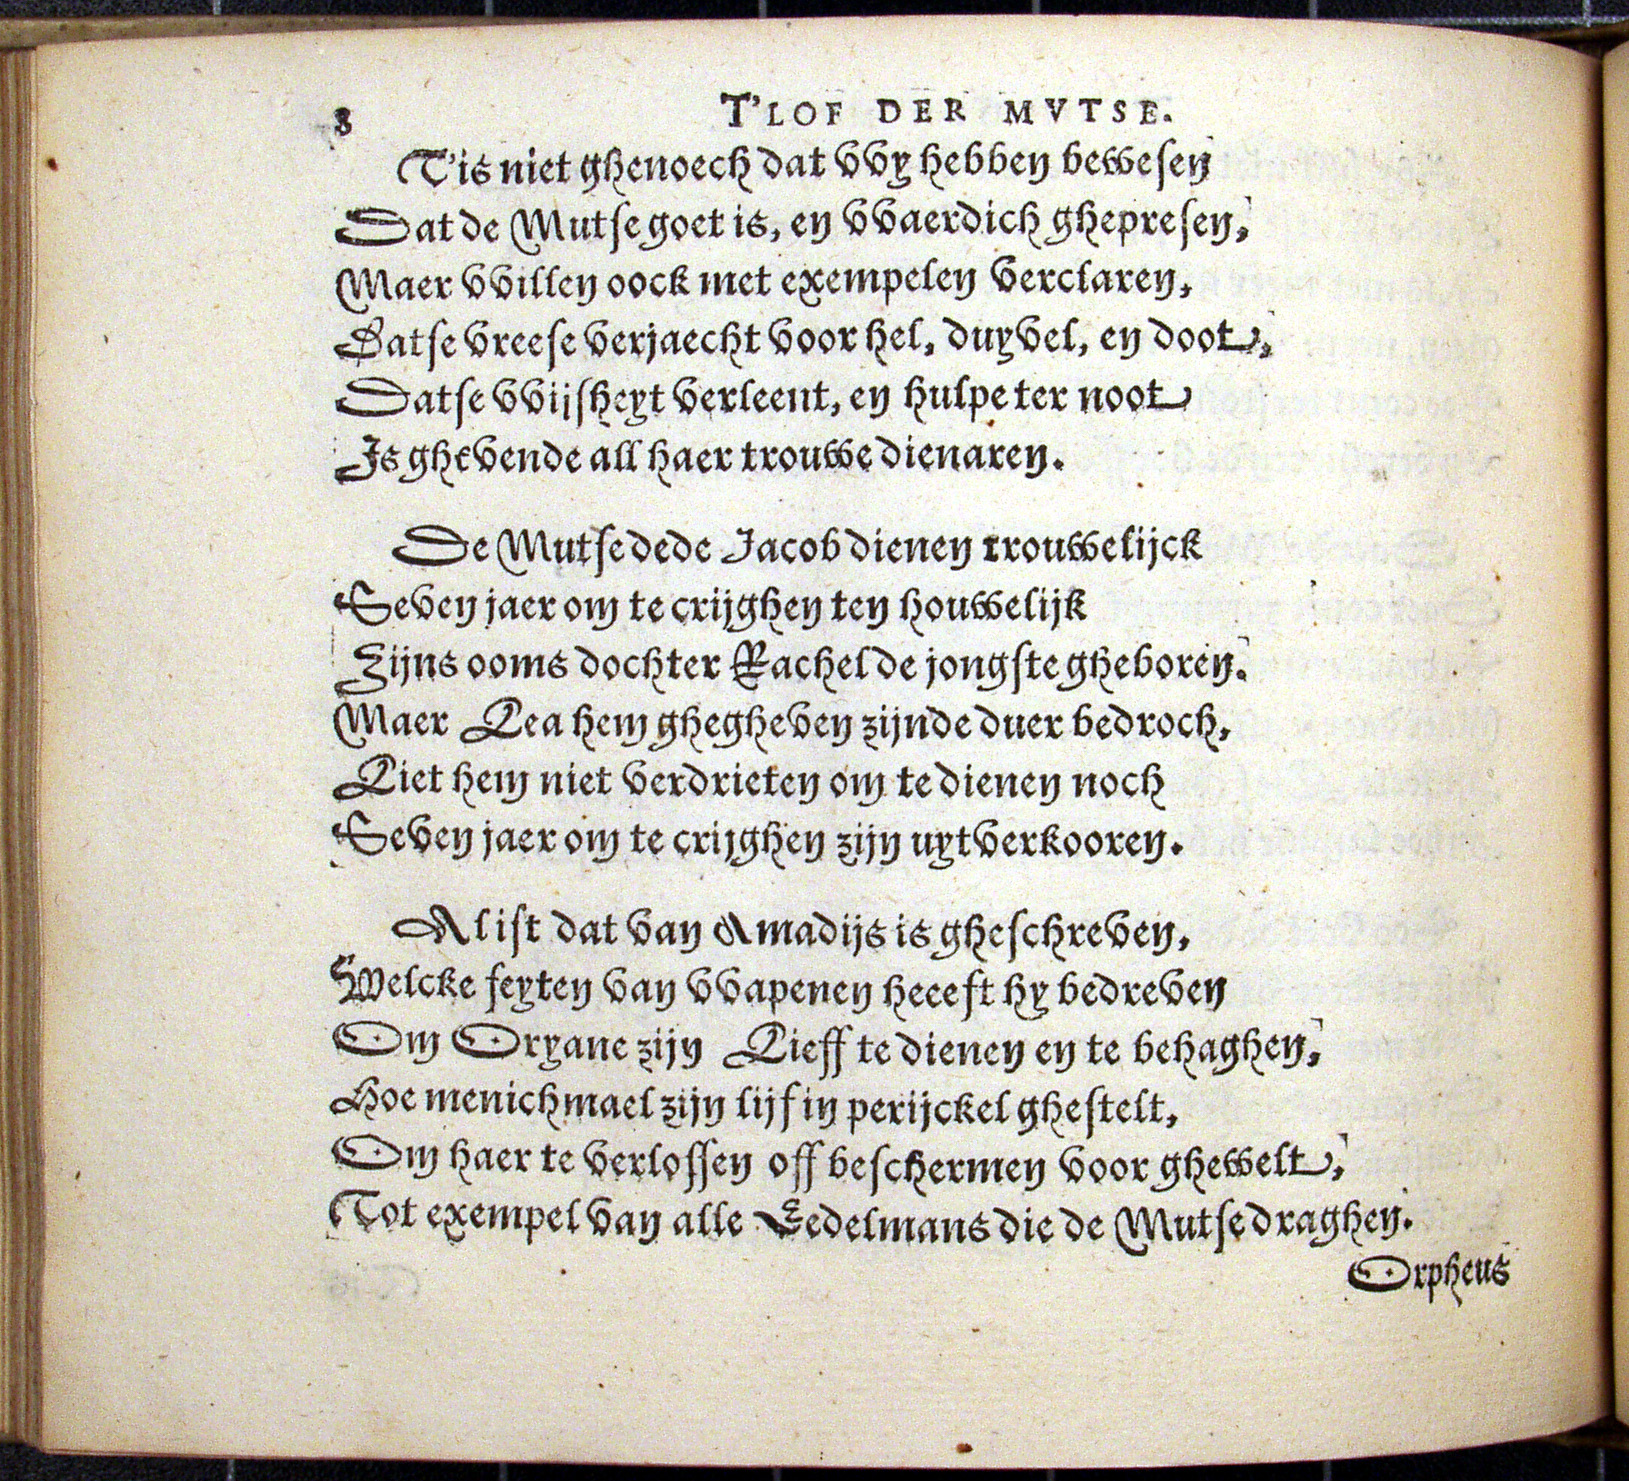 8 T'LOF DER MVTSE.
T'is niet ghenoech dat vvy hebben bewesen
Dat de Mutse goet is, en vvaerdich ghepresen,
Maer vvillen oock met exempelen verclaren,
Datse vreese verjaecht voor hel, duyvel, en doot,
Datse vvijsheyt verleent, en hulpe ter noot
Is ghevende all haer trouwe dienaren.
De Mutse dede Jacob dienen trouwelijck
Seven jaer om te crijghen ten houwelijk
Zijns ooms dochter Rachel de jongste gheboren.
Maer Lea hem ghegheven zijnde duer bedroch,
Liet hem niet verdrieten om te dienen noch
Seven jaer om te crijghen zijn uytverkooren.
Al ist dat van Amadijs is gheschreven,
Welcke feyten van vvapenen heeeft hy bedreven
Om Oryane zijn Lieff te dienen en te behaghen,
Hoe menichmael zijn lijf in perijckel ghestelt,
Om haer te verlossen off beschermen voor ghewelt,
Tot exempel van alle Eedelmans die de Mutse draghen.
Orpheus